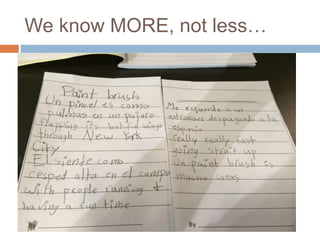 We know MORE, not less…
Paint brush
Un pincel es como
pulmas en un pajaro
Flapping its butiful wings
through New York
City
El siente como
cesped alta en el campo
with people running &
having a fun time
Me recuerda a un
astronave despagando a la
espacio
really really fast
going strait up
Un paint brush is
mucho cosas
By